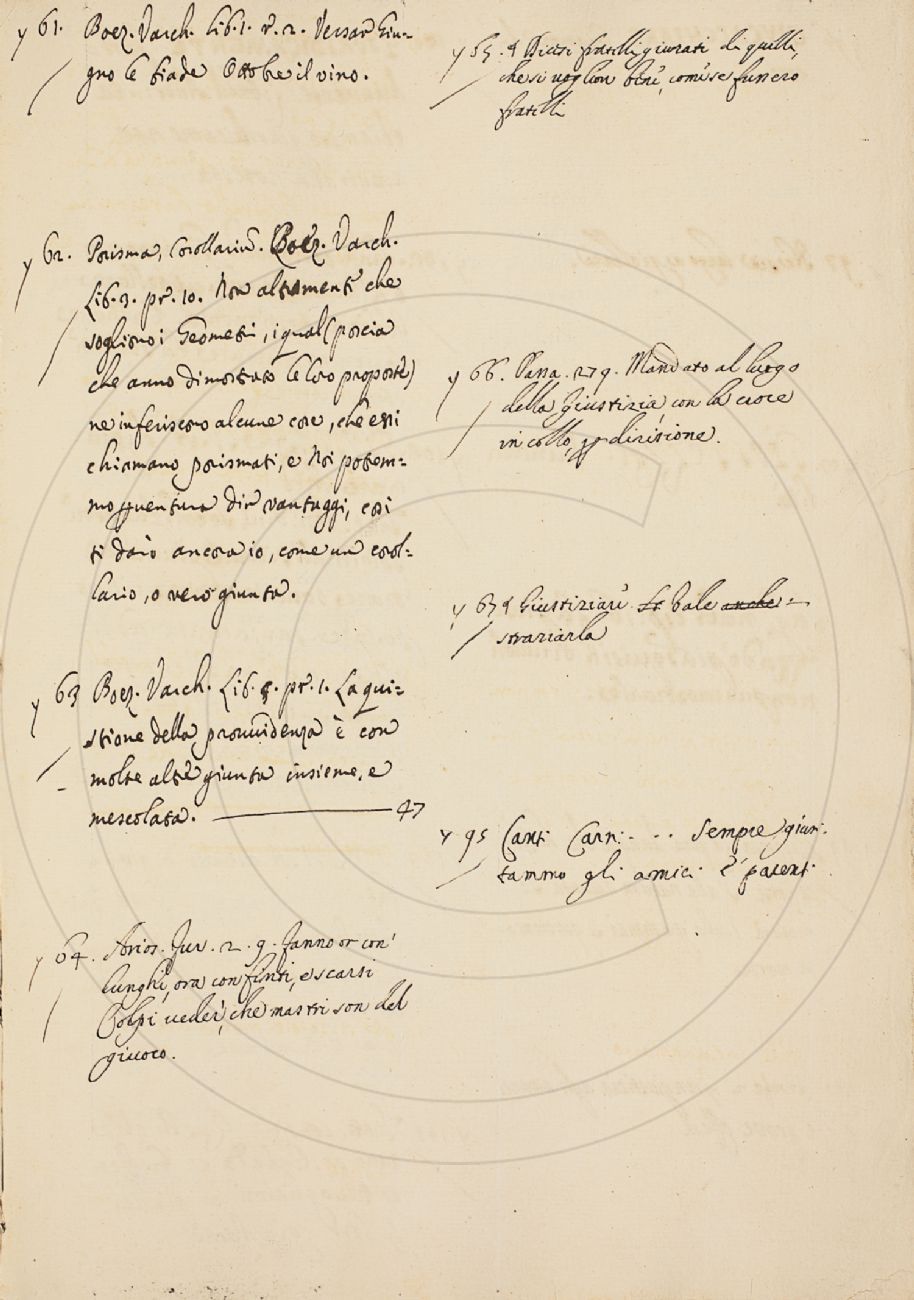 y 61. Boez. Varch. Lib. 1. r. 2. Versar Giu-
gno le biade Ottobre il vino.
y 62. Porisma, Corollariũ. Boez. Varch.
Lib. 3. pr. 10. Non altrmentê che
sogliono i Geometri, i quali (poscia
che anno dimostrato le loro proposte)
ne inferiscono alcune cose, che essi
chiamano porismati, e Noi potem-
mo pventura dir vantaggi, cosi
ti darò ancora io, come un corol-
lario, o vero giunta.
y 63 Boez. Varch. Lib. 5. pr. 1. La qui-
stione della provvidenza è con
molte altre giunta insieme, e
mescolata. 47
y 64. Arios. Fur. 2. 9. Fanno or con
lunghi, ora con finti, e scarsi
Colpi veder, che mastri son del
giuoco.
y 65. Dicesi fratelli giurati di quelli,
che si voglion bene, come se fussero
fratelli
y 66. Passa. 279. Mandato al luogo
della Giustizia, con la croce
in collo, p dirisione.
y 67 Giustiziare Vale anche
straziarla
y 95 Canti Carn: . . Sempre giun-
tammo gli amici e parenti